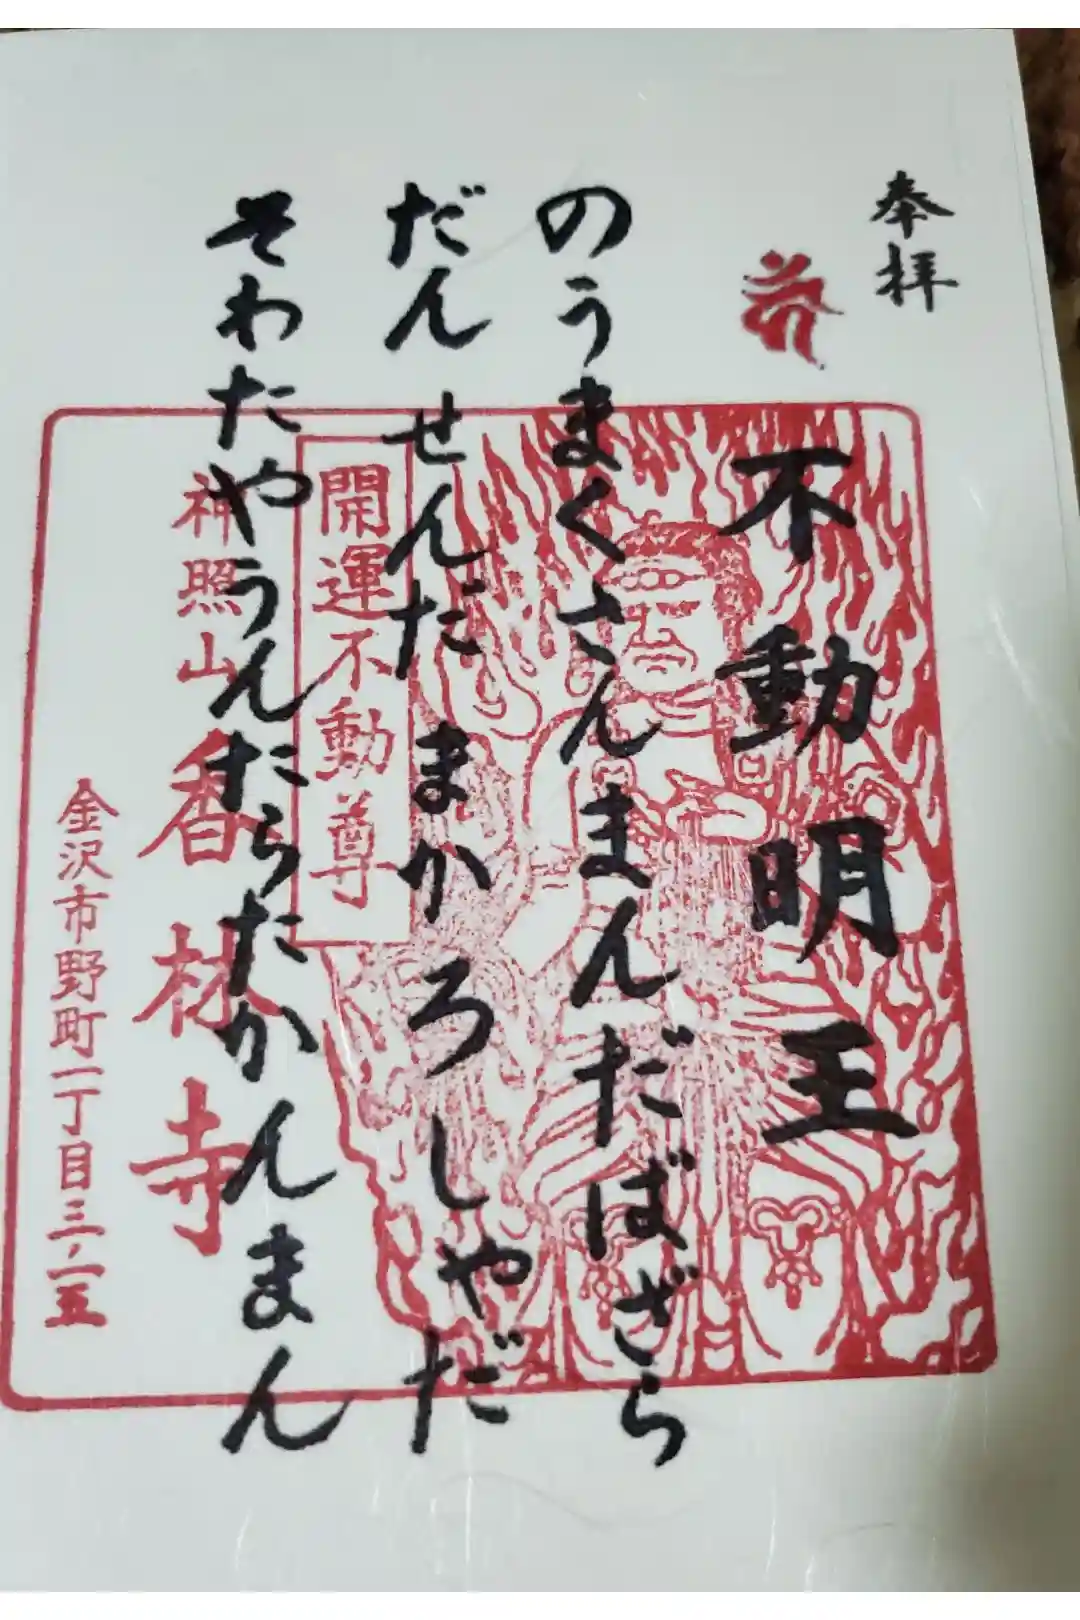 奉拝
不動明王
のうまくさんまんだばざら
だん せんだ まかろしやだ
そわたやうんたらたかんまん
開運不動尊
神照山 香林寺
金沢市野町一丁目三-一五